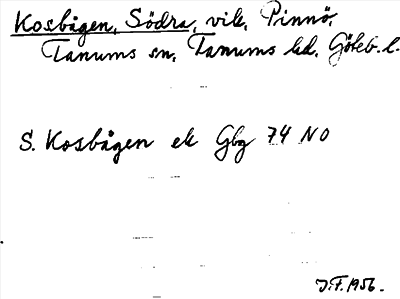 Kosbågen, Södra, vik, Pinnö,
Tanums sn, Tanums hd, Göteb. l.
S. Kosbågen ek Gbg 74 NO
J.F. 1956.